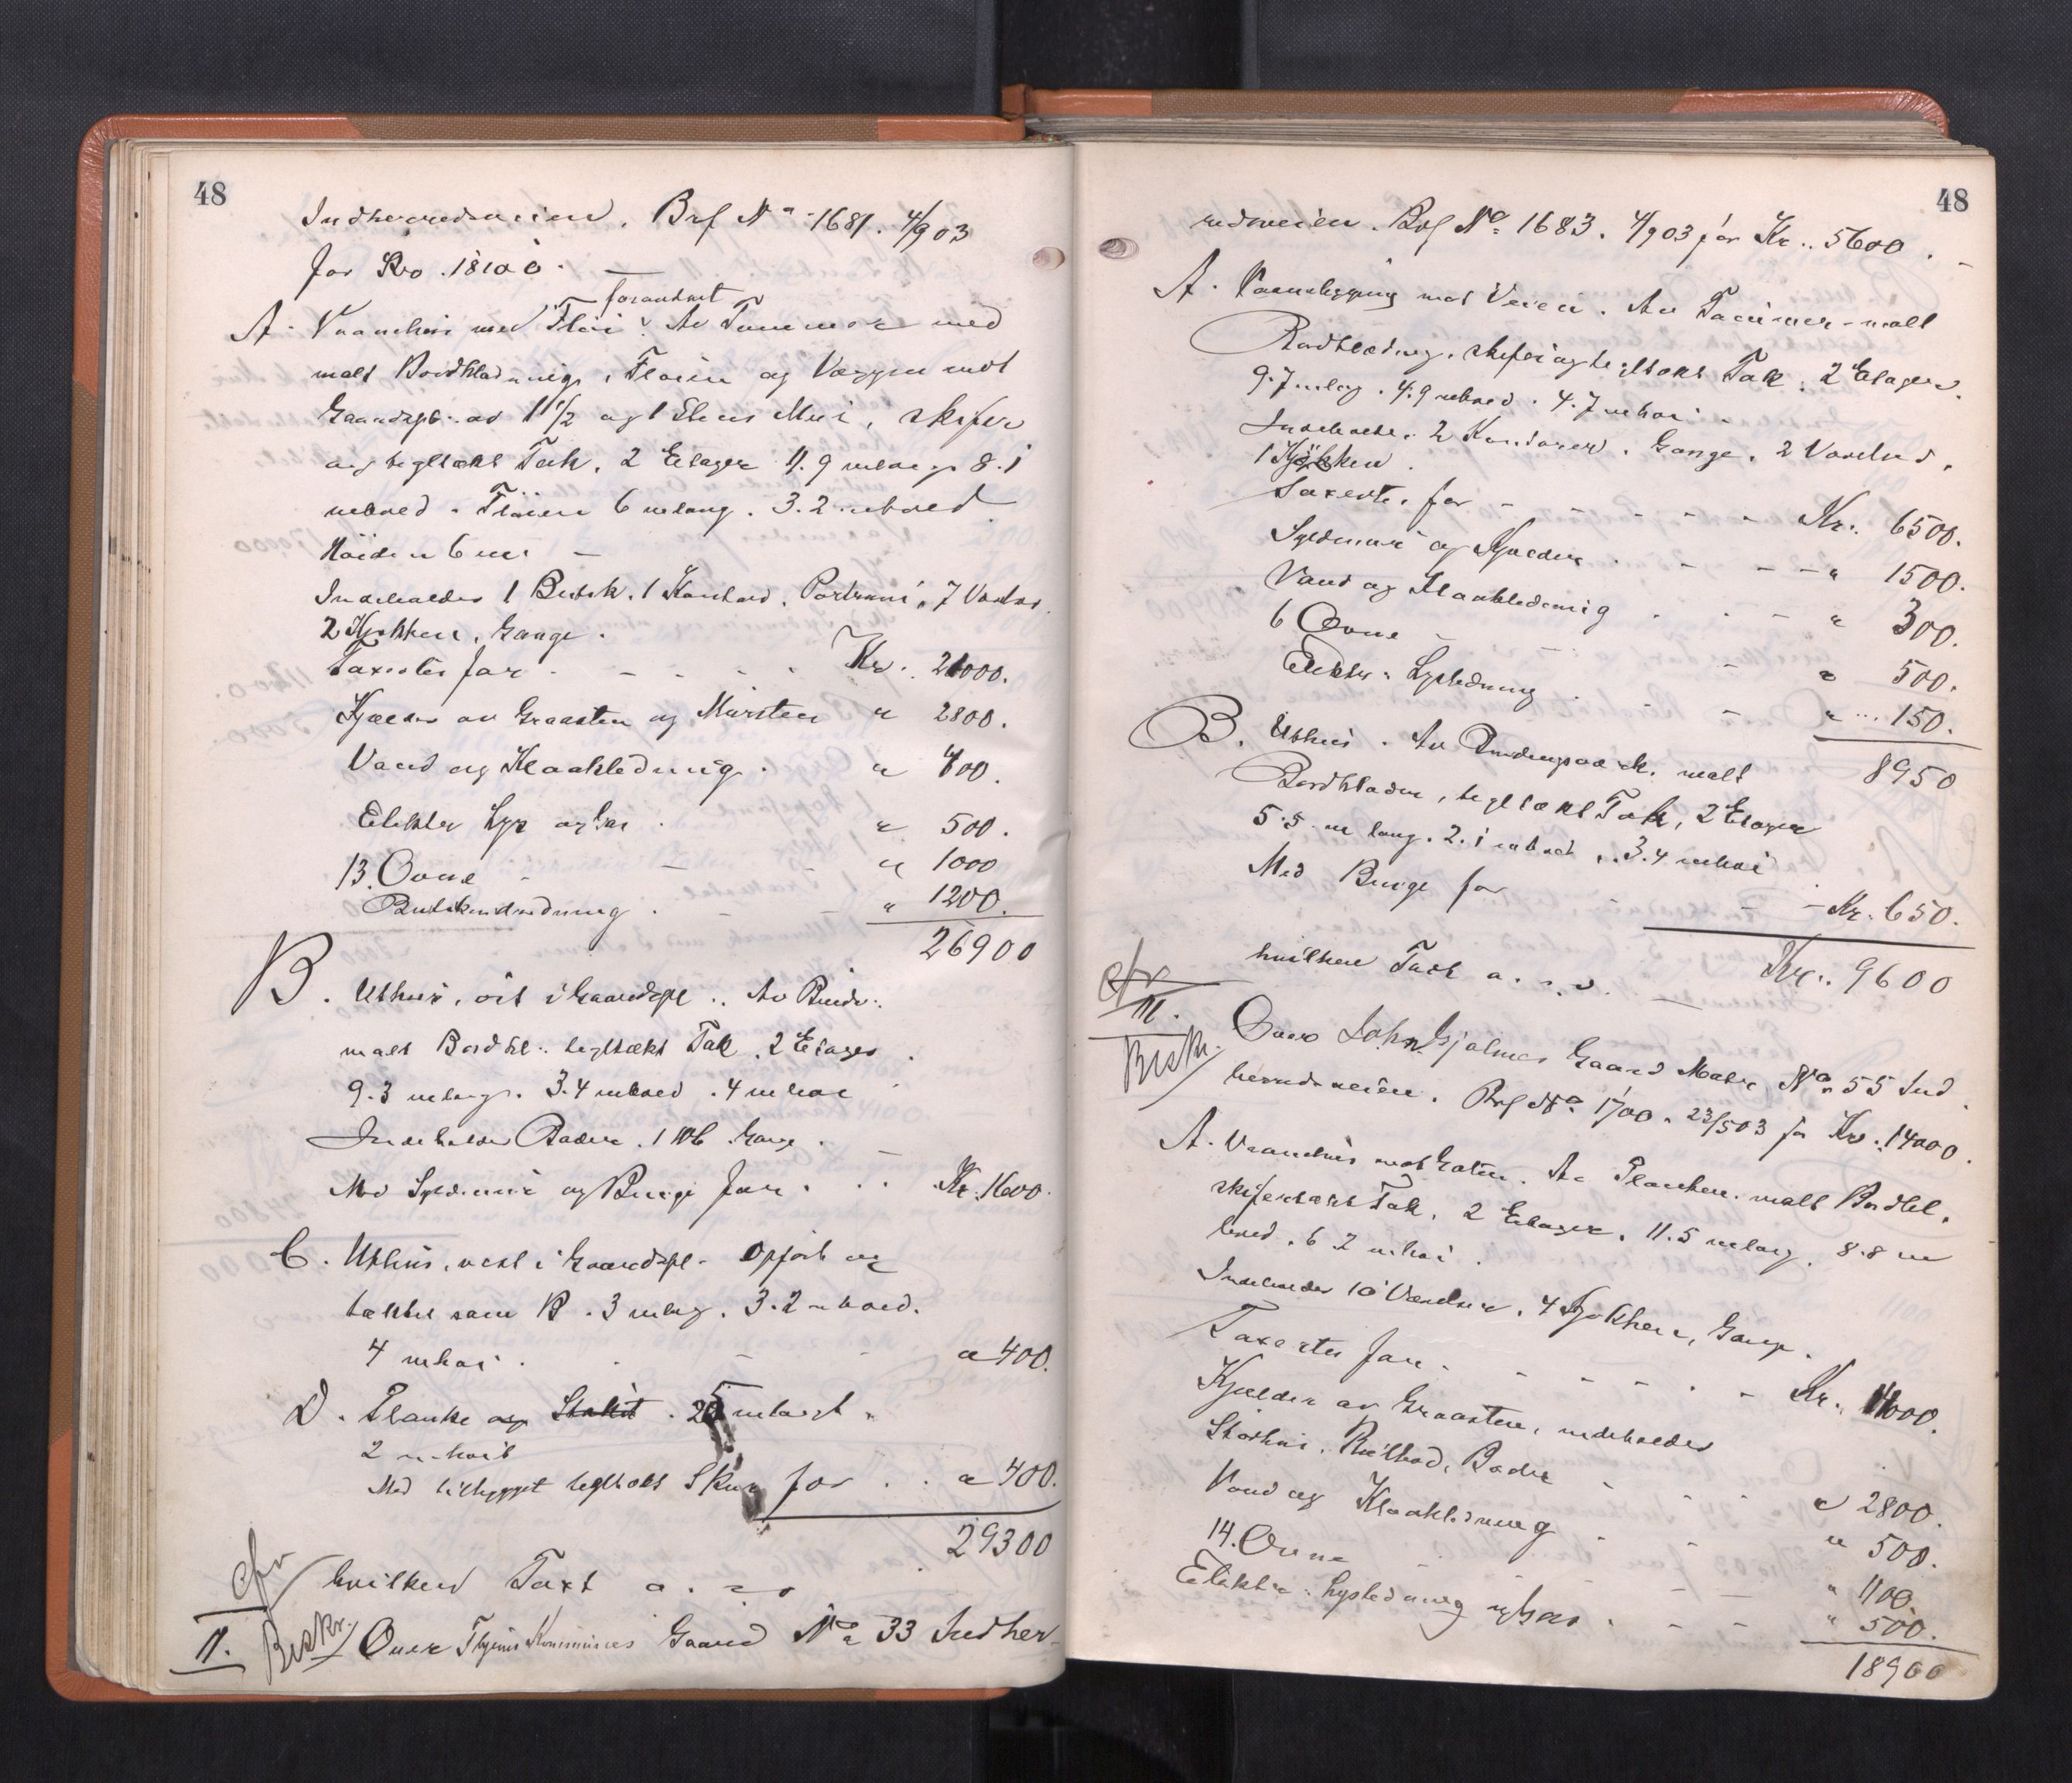 48
Indherredsveien. Brf No 1681. 4/9 03
for Kro. 18100. —
forandret
A. Vaanehus med Fløi. Av Tømmer med
malt Bordklædning, Fløien og Væggen mot
Gaardspl. av 1 1/2 og 1 Stens Mur, skifer
og tegltækt Tak, 2 Etager 11.9 mlang 8.1
mbred. Fløien 6 mlang. 3.2 mbred
Høiden 6 m. —
Indeholder 1 Butik. 1 Kontor, Portrum, 7 Værelser
2 Kjøkken, Gange.
Taxertes for Kr. 21000.
Kjælder av Graasten og Mursten " 2800.
Vand og Kloakledning. " 400.
Elektr Lys og Gas " 500.
13. Ovne " 1000
Butikindredning. " 1200.
26900
B. Uthus, øst i Gaardspl. Av Bindv.
malt Bordkl. tegltækt Tak, 2 Etager
9.3 mlang. 3.4 mbred. 4 mhøi
Indeholder Boder. 1 WC Gang.
Med Syldmur og Binge for Kr. 1600.
C. Uthus, vest i Gaardspl. Opført og
tækket som B. 3 mlang. 3.2 mbred.
4 mhøi. " 400.
D. Planke og Stakit. 25 mlangt
2 mhøit
Med tilbygget tegltækt Skur for " 400.
29300
cfr
hvilken Taxt a.
II. Beskr. Over Kommunes Gaard No 33 Indher-
48
redsveien. Brf No 1683. 4/9 03 for Kr. 5600.
A. Vaanebygning mot Veien. Av Tømmer - malt
Bordklædning, skifer og tegltækt Tak. 2 Etager.
9.7 mlang. 4.9 mbred. 4.7 mhøi.
Indeholder 2 Kontorer, Gange, 2 Værelser,
1 Kjøkken.
Taxertes for Kr. 6500.
Syldmur og Kjælder " 1500.
Vand og Kloakledning " 300.
6 Ovne " 500.
Elektr. Lysledning " 150.
8950
B. Uthus. Av Bindingsværk. malt
Bordklædn, tegltækt Tak, 2 Etager
5.5 m lang. 2.1 mbred, 3.4 mhøi
Med Binge for Kr. 650.
hvilken Taxt a. Kr. 9600
cfr
III.
Beskr. Over John Gjølmes Gaard Matr No 55 Ind
herredsveien. Brf No 1700. 23/5 03 for Kr. 14000.
A. Vaanehus mot Gaten. Av Planker. malt Bordkl.
skifertækt Tak. 2 Etager. 11.5 mlang. 8.8 m
bred. 6.2 mhøi.
Indeholder 10 Værelser, 4 Kjøkken, Gange.
Taxertes for Kr. 14000.
Kjælder av Graasten, indeholder
Boder " 2800.
Vand og Kloakledning " 500.
14. Ovne " 1100.
Elektr. Lysledning og Gas " 500.
18900